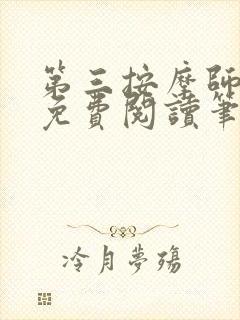 第三按摩師
免費閱讀筆
冷月夢殤